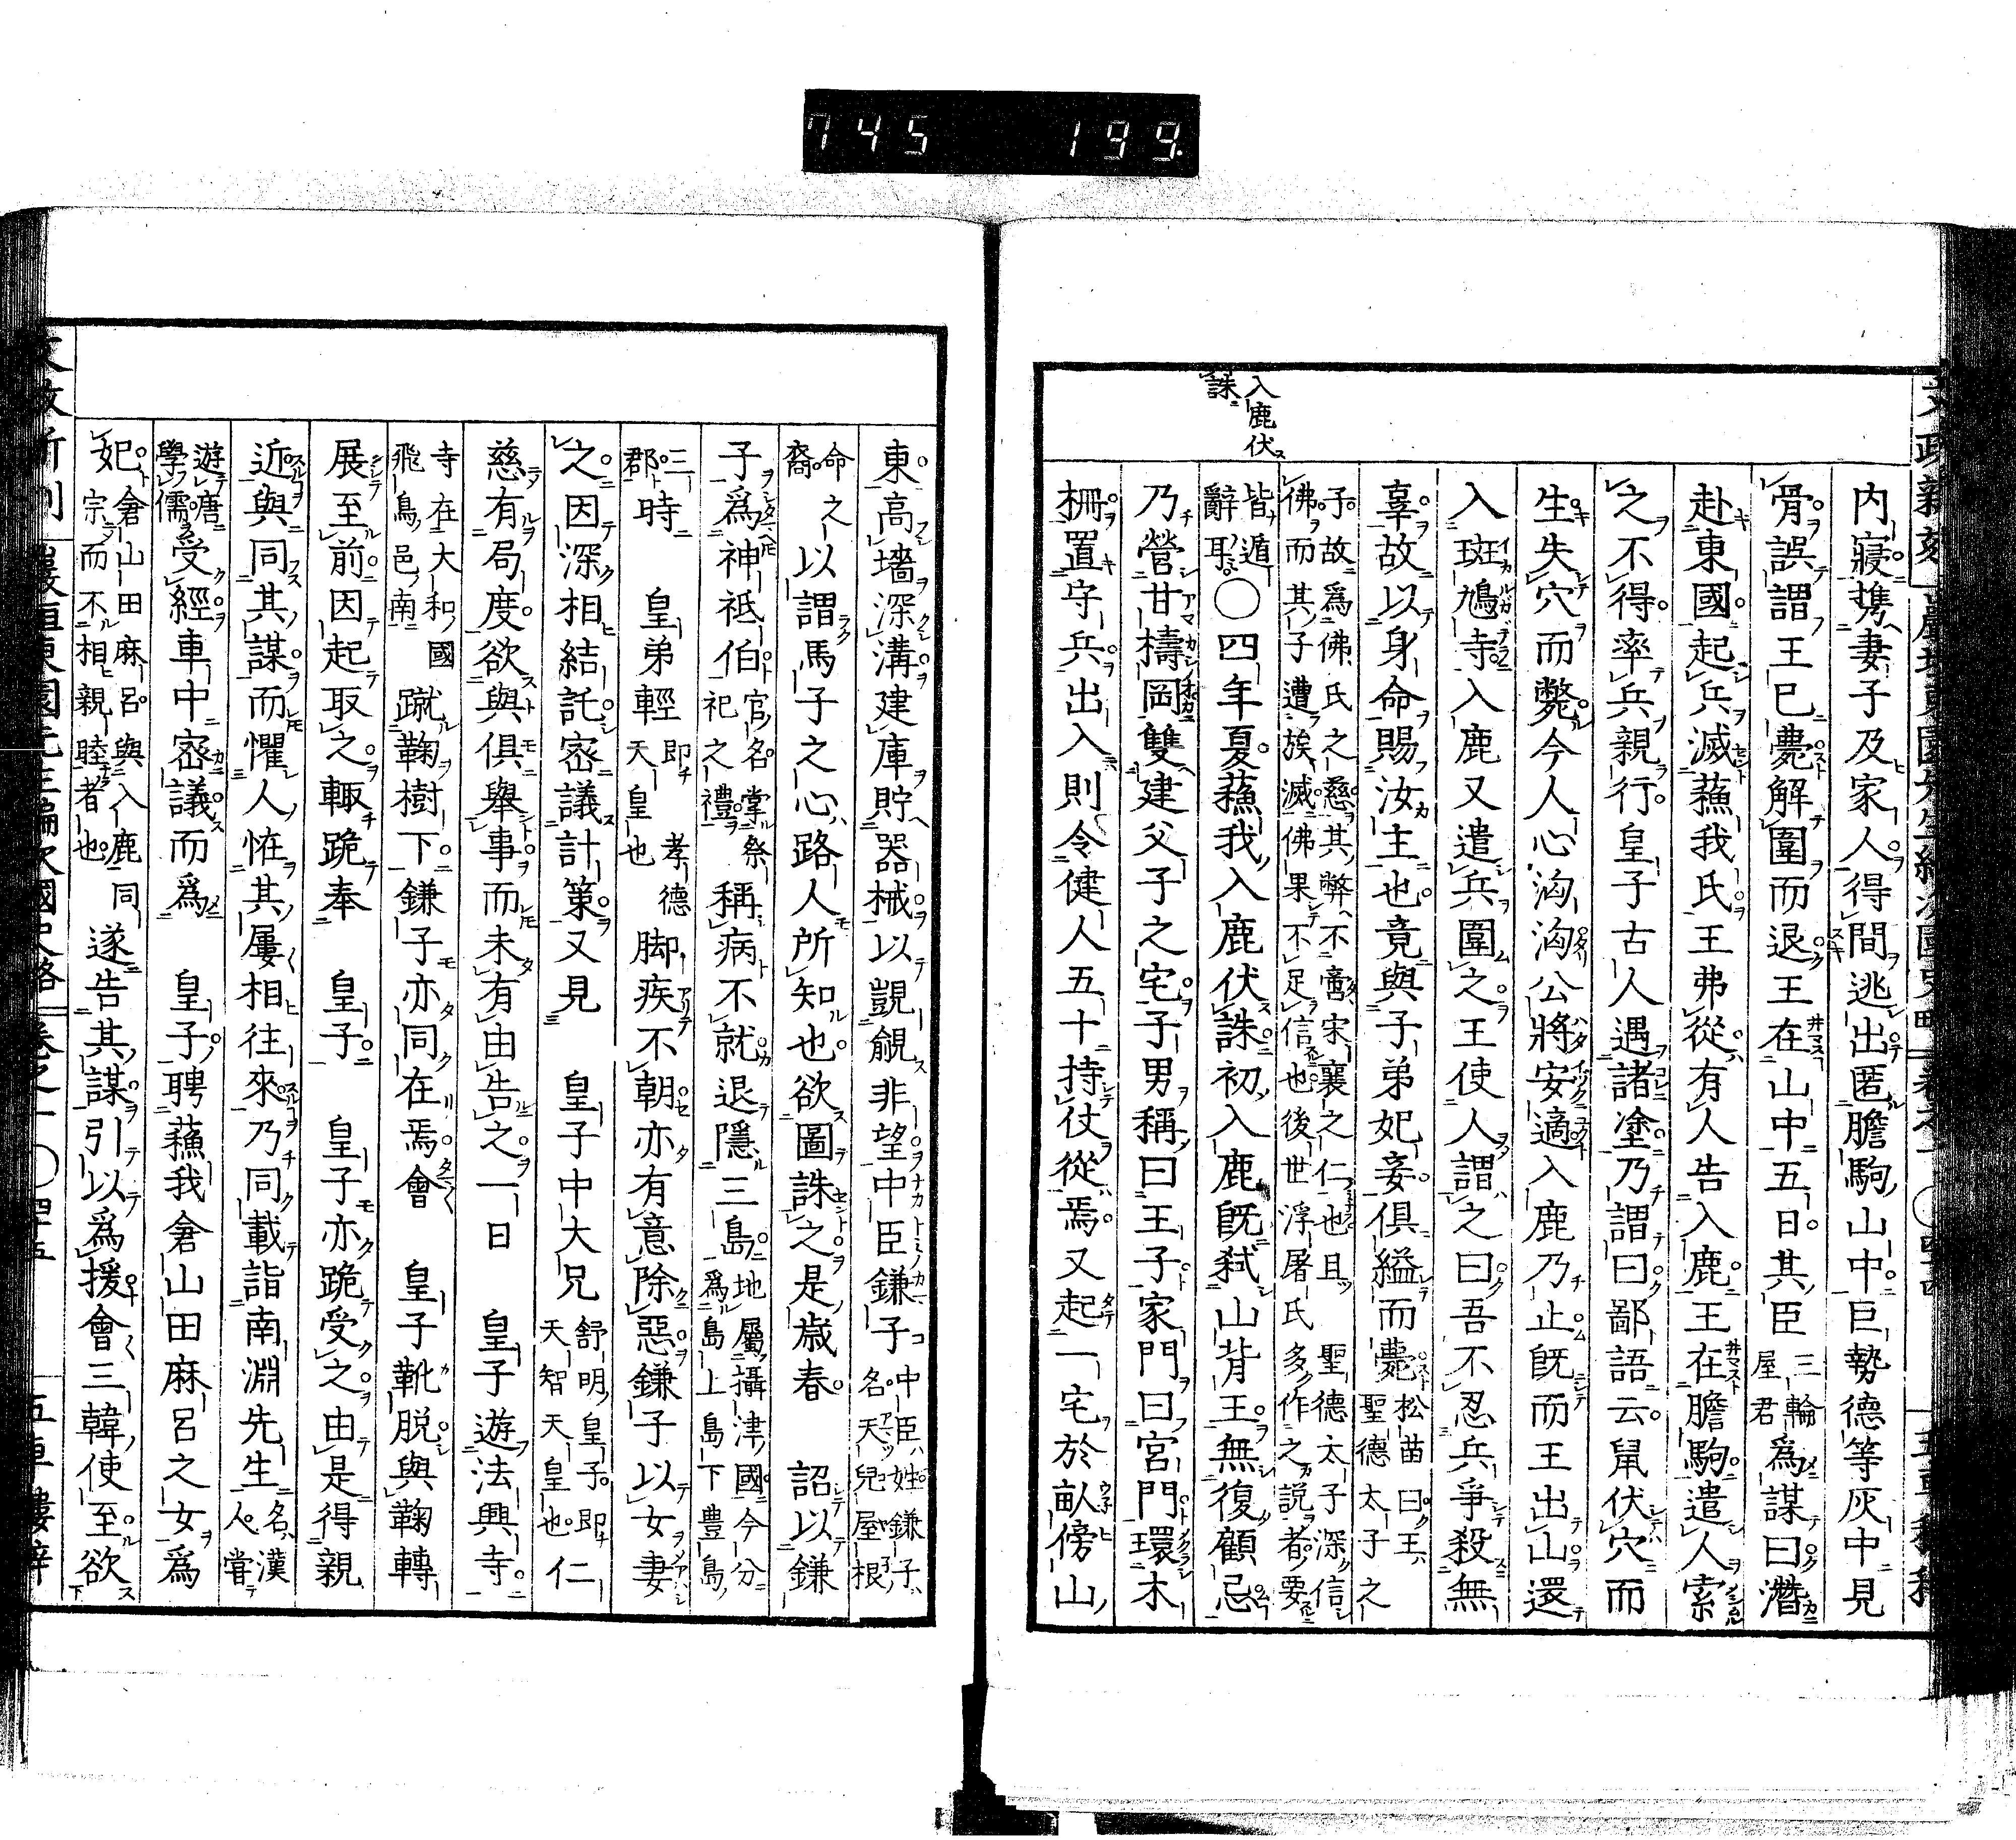 745 199.
入鹿伏
誅
内寢携妻子及家人得間逃出匿膽駒山中巨勢德等灰中見
骨誤謂王已薨解圍而退王在山中五日其臣三輪屋君爲謀曰潛
赴東國起兵滅蘇我氏王弗從有人告入鹿王在膽駒遣人索
之不得率兵親行皇子古人遇諸塗乃謂曰鄙語云鼠伏穴而
生失穴而斃今人心洶洶公將安適入鹿乃止既而王出山還
入斑鳩寺入鹿又遣兵圍之王使人謂之曰吾不忍兵爭殺無
辜故以身命賜汝主也竟與子弟妃妾俱縊而薨松苗曰王聖德太子之
子故爲佛氏之慈其弊不啻宋襄之仁也且聖德太子深信
佛而其子遭族滅佛果不足信也後世浮屠氏多作之説者要
皆遁
辭耳〇四年夏蘇我入鹿伏誅初入鹿既弑山背王無復顧忌
乃營甘檮岡雙建父子之宅子男稱曰王子家門曰宮門環木
柵置守兵出入則令健人五十持仗從焉又起一宅於畝傍山
東高墻深溝建庫貯器械以覬覦非望中臣鎌子中臣姓鎌子名天兒屋根
命之
裔以謂馬子之心路人所知也欲圖誅之是歳春 詔以鎌
子爲神祇伯官名掌祭祀之禮稱病不就退隱三島地屬攝津國今分爲島上島下豊島
三
郡時 皇弟輕即孝德天皇也脚疾不朝亦有意除惡鎌子以女妻
之因深相結託密議計策又見 皇子中大兄舒明皇子即天智天皇也仁
慈有局度欲與俱舉事而未有由告之一日 皇子遊法興寺
寺在大和國
飛鳥邑南蹴鞠樹下鎌子亦同在焉會 皇子靴脱與鞠轉
展至前因起取之輙跪奉 皇子 皇子亦跪受之由是得親
近與同其謀而懼人恠其屢相往來乃同載詣南淵先生名漢人嘗
遊唐
學儒受經車中密議而爲 皇子聘蘇我倉山田麻呂之女爲
妃倉山田麻呂與入鹿同宗而不相親睦者也遂告其謀引以爲援會三韓使至欲